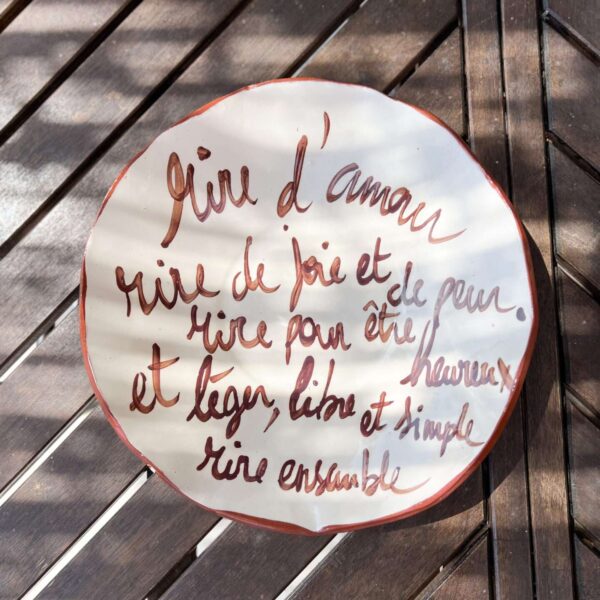 rire d'amour
rire de joie et de peur.
rire pour être heureux
et léger, libre et simple
rire ensemble